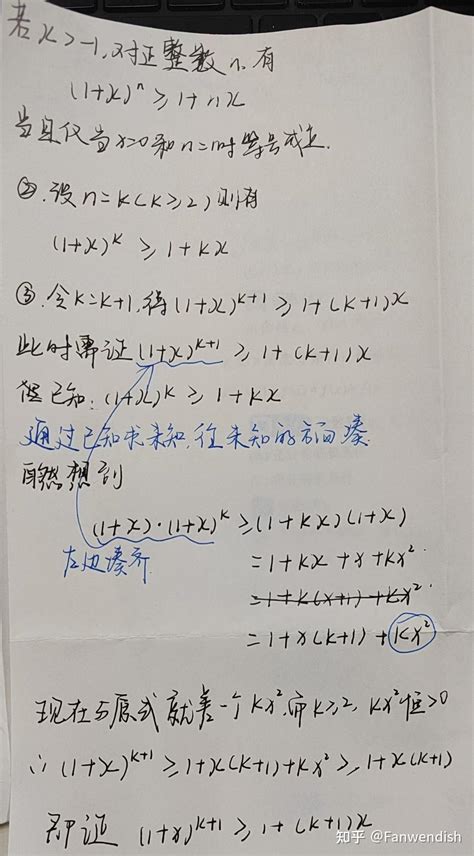 若x>-1,对正整数n,有
(1+x)ⁿ ≥ 1+nx
当且仅当x=0和n=1时等号成立.
②.设n=k(k≥2)则有
(1+x)ᵏ ≥ 1+kx
③.令k=k+1,得(1+x)ᵏ⁺¹ ≥ 1+(k+1)x
此时需证(1+x)ᵏ⁺¹ ≥ 1+(k+1)x
但已知:(1+x)ᵏ ≥ 1+kx
通过已知求未知,往未知的方向凑.
自然想到
(1+x)·(1+x)ᵏ ≥(1+kx)(1+x)
左边凑齐
=1+kx+x+kx²
=1+k(x+1)+kx²
=1+x(k+1)+kx²
现在与原式就差一个kx²,而k≥2, kx²恒>0
∴(1+x)ᵏ⁺¹ ≥1+x(k+1)+kx² ≥,1+x(k+1)
即证 (1+x)ᵏ⁺¹ ≥ 1+(k+1)x
知乎 @Fanwendish